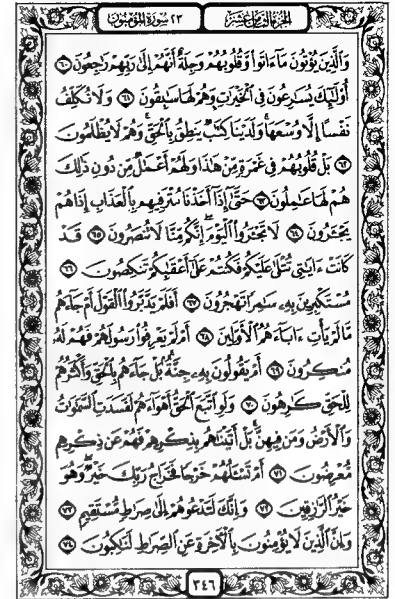 الجزء الثامن عشر ٢٣ سورة المؤمنون
وَالَّذِينَ يُؤْتُونَ مَا ءَاتَوا وَّقُلُوبُهُمْ وَجِلَةٌ أَنَّهُمْ إِلَىٰ رَبِّهِمْ رَاجِعُونَ ٦٠
أُوْلَٰئِكَ يُسَارِعُونَ فِي الْخَيْرَاتِ وَهُمْ لَهَا سَابِقُونَ ٦١ وَلَا نُكَلِّفُ
نَفْسًا إِلَّا وُسْعَهَا وَلَدَيْنَا كِتَابٌ يَنطِقُ بِالْحَقِّ وَهُمْ لَا يُظْلَمُونَ
٦٢ بَلْ قُلُوبُهُمْ فِي غَمْرَةٍ مِّنْ هَٰذَا وَلَهُمْ أَعْمَالٌ مِّن دُونِ ذَٰلِكَ
هُمْ لَهَا عَامِلُونَ ٦٣ حَتَّىٰ إِذَا أَخَذْنَا مُتْرَفِيهِم بِالْعَذَابِ إِذَا هُمْ
يَجْـَٔرُونَ ٦٤ لَا تَجْـَٔرُوا الْيَوْمَ إِنَّكُم مِّنَّا لَا تُنصَرُونَ ٦٥ قَدْ
كَانَتْ ءَايَاتِي تُتْلَىٰ عَلَيْكُمْ فَكُنتُمْ عَلَىٰ أَعْقَابِكُمْ تَنكِصُونَ ٦٦
مُسْتَكْبِرِينَ بِهِ سَامِرًا تَهْجُرُونَ ٦٧ أَفَلَمْ يَدَّبَّرُوا الْقَوْلَ أَمْ جَاءَهُم
مَّا لَمْ يَأْتِ ءَابَاءَهُمُ الْأَوَّلِينَ ٦٨ أَمْ لَمْ يَعْرِفُوا رَسُولَهُمْ فَهُمْ لَهُ
مُنكِرُونَ ٦٩ أَمْ يَقُولُونَ بِهِ جِنَّةٌ بَلْ جَاءَهُم بِالْحَقِّ وَأَكْثَرُهُمْ
لِلْحَقِّ كَارِهُونَ ٧٠ وَلَوِ اتَّبَعَ الْحَقُّ أَهْوَاءَهُمْ لَفَسَدَتِ السَّمَاوَاتُ
وَالْأَرْضُ وَمَن فِيهِنَّ بَلْ أَتَيْنَاهُم بِذِكْرِهِمْ فَهُمْ عَن ذِكْرِهِم
مُّعْرِضُونَ ٧١ أَمْ تَسْـَٔلُهُمْ خَرْجًا فَخَرَاجُ رَبِّكَ خَيْرٌ وَهُوَ
خَيْرُ الرَّازِقِينَ ٧٢ وَإِنَّكَ لَتَدْعُوهُمْ إِلَىٰ صِرَاطٍ مُّسْتَقِيمٍ ٧٣
وَإِنَّ الَّذِينَ لَا يُؤْمِنُونَ بِالْآخِرَةِ عَنِ الصِّرَاطِ لَنَاكِبُونَ ٧٤
٣٤٦